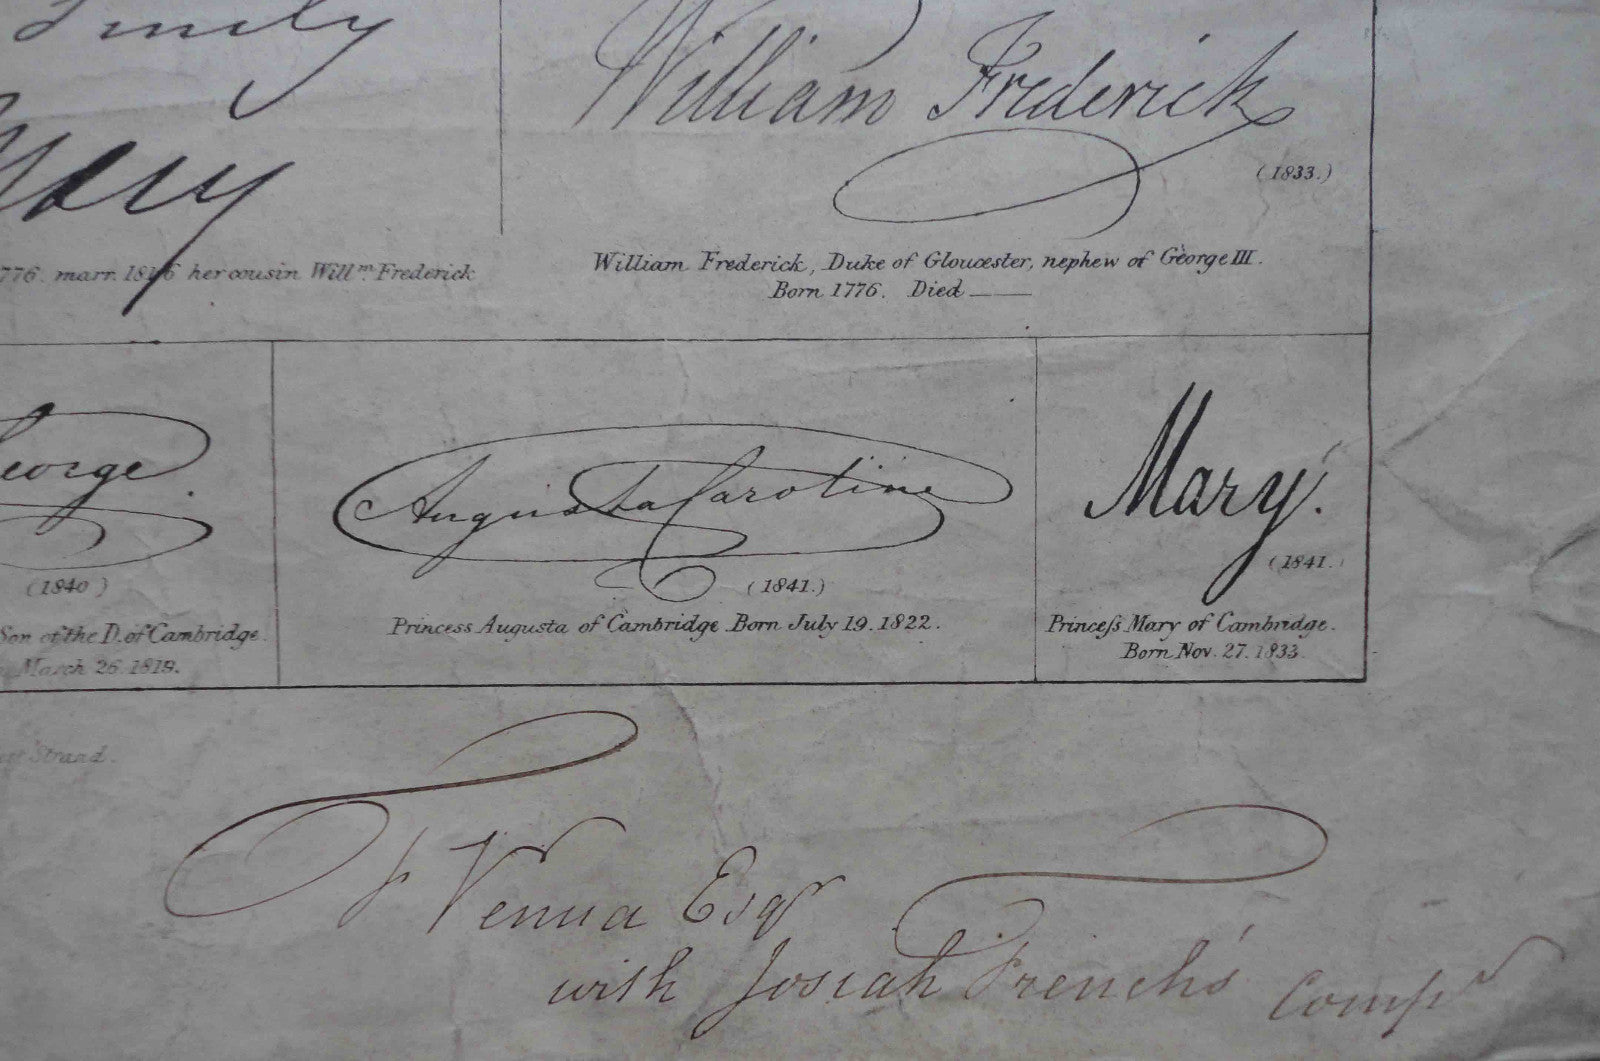 Emily
Mary
776. marr. 1816 her cousin Willm. Frederick
William Frederick
(1833.)
William Frederick, Duke of Gloucester, nephew of George III.
Born 1776. Died ——
George
(1840)
Son of the D. of Cambridge.
March 26. 1819.
Augusta Caroline
(1841.)
Princess Augusta of Cambridge. Born July 19. 1822.
Mary.
(1841.)
Princeſs Mary of Cambridge.
Born Nov. 27. 1833
Strand.
Venua Esqr
with Josiah French's Compts